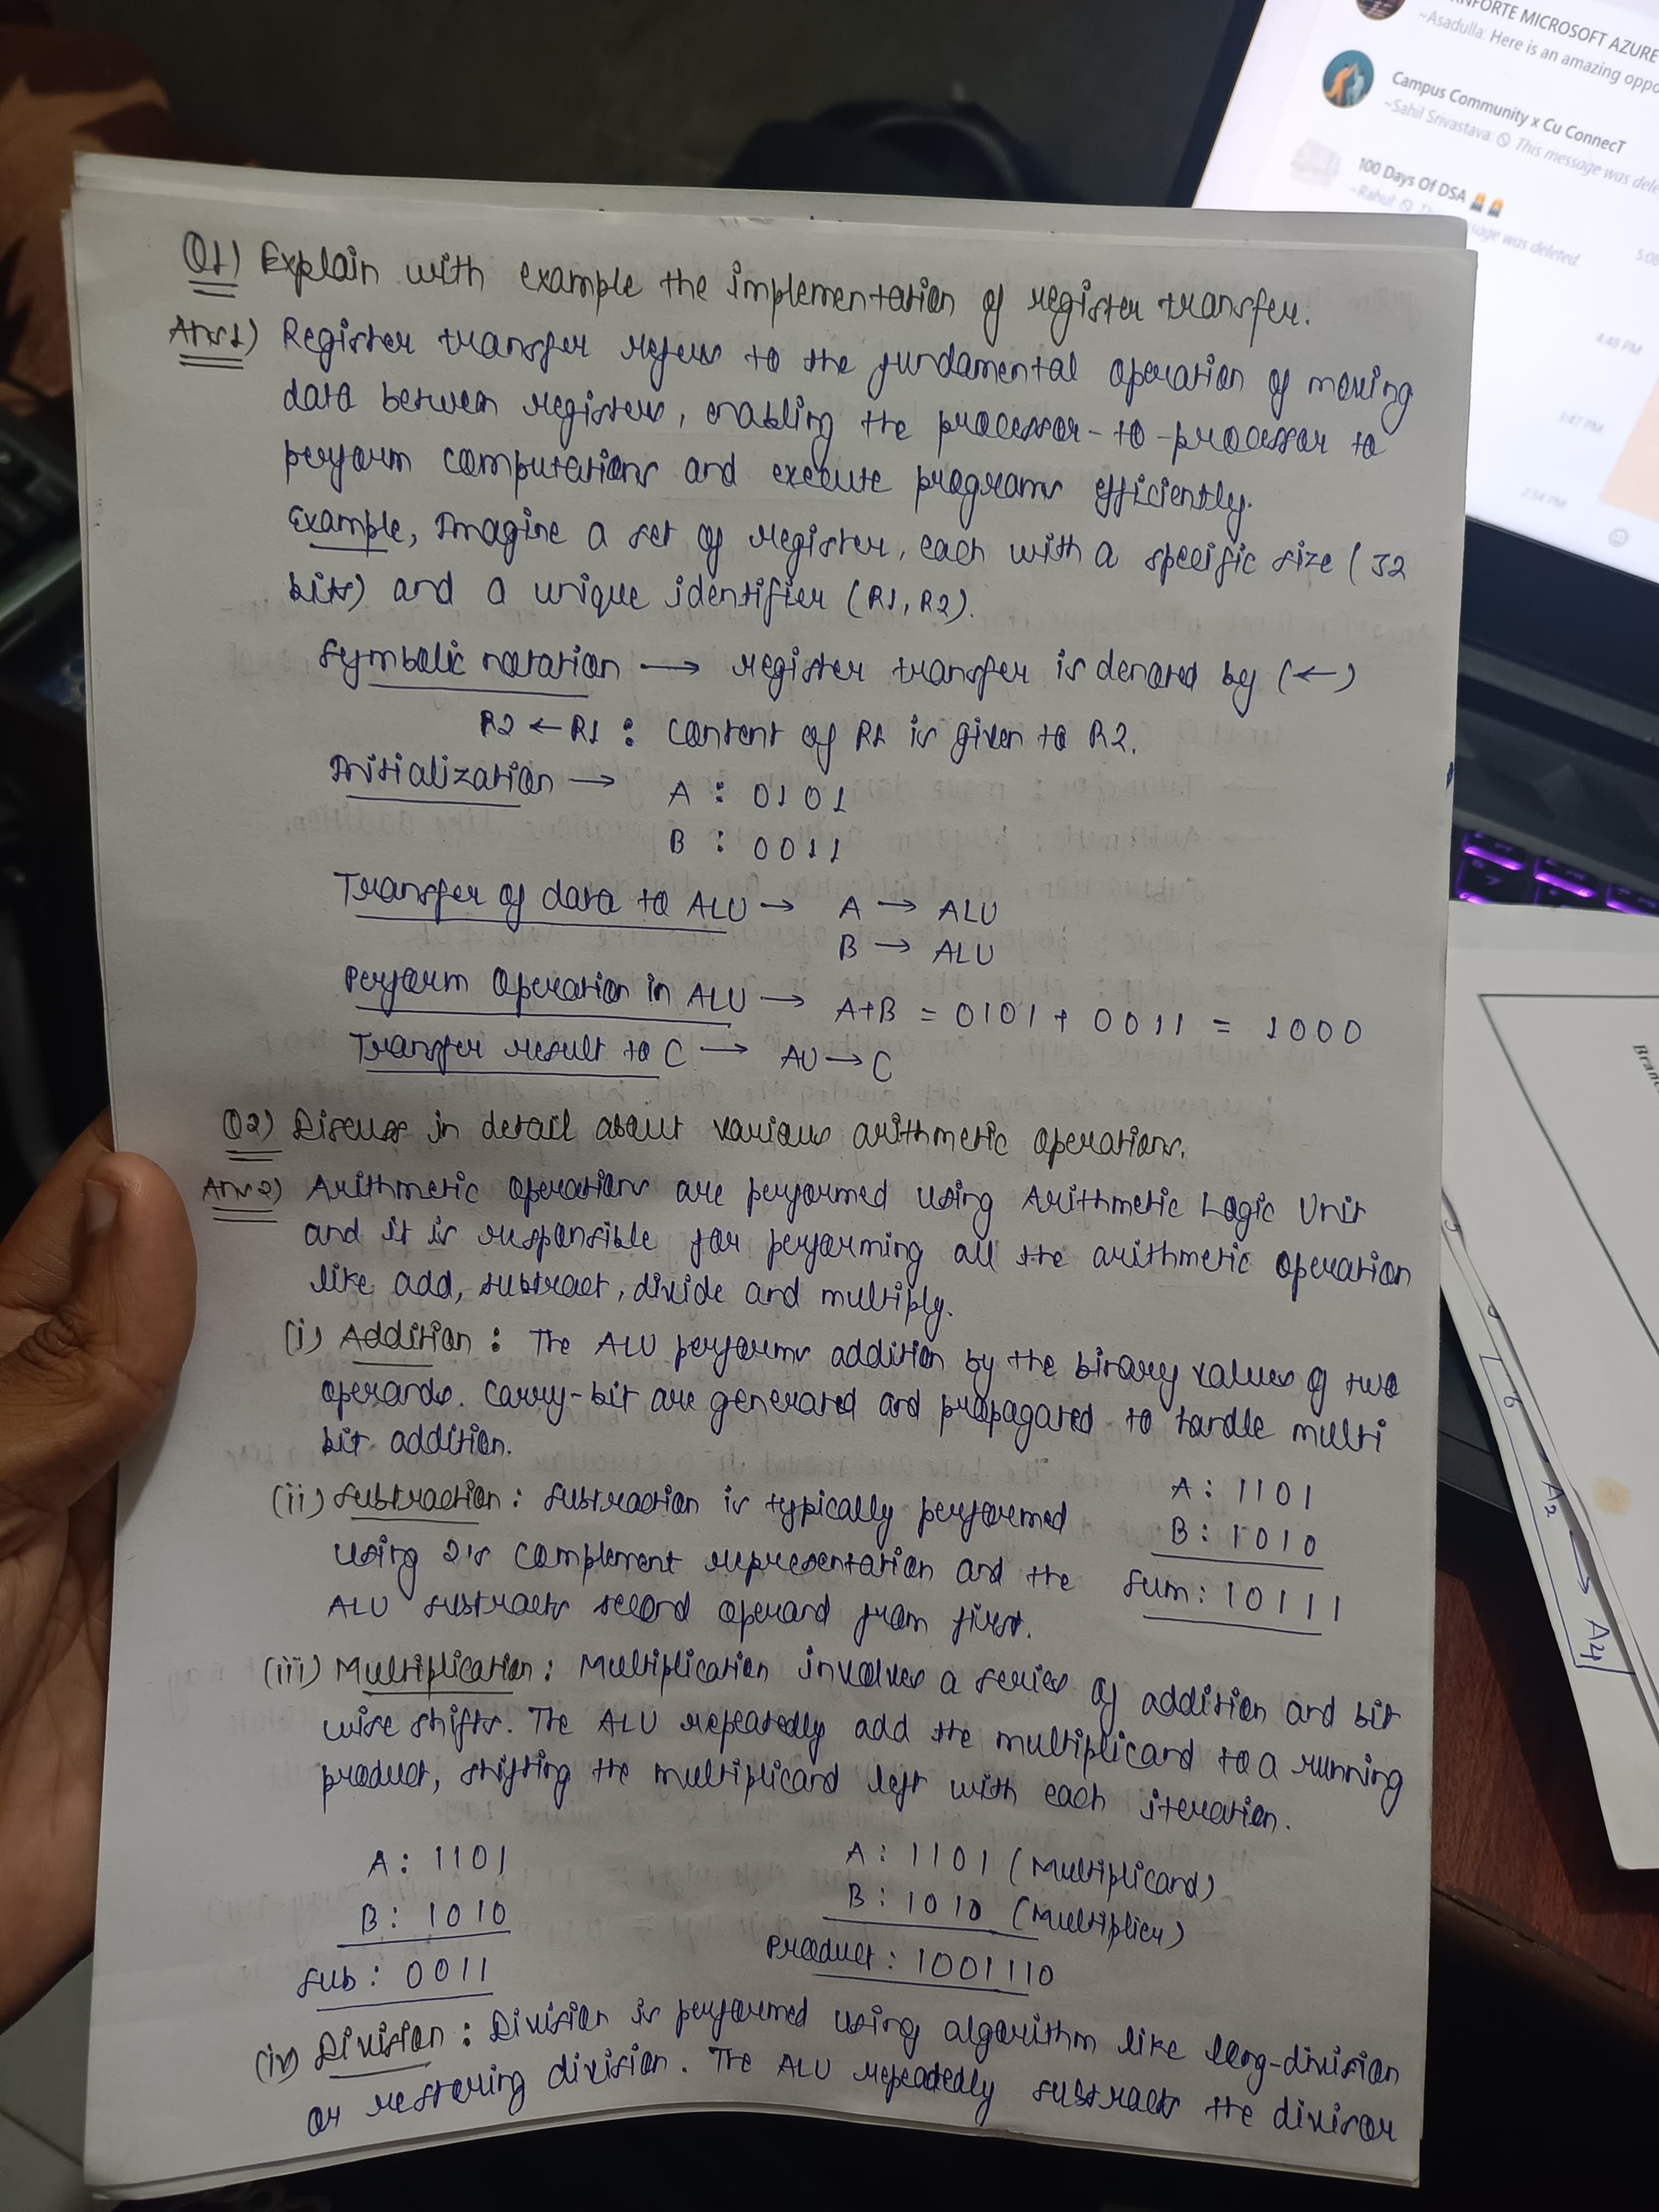 NFORTE MICROSOFT AZURE
~Asadulla: Here is an amazing oppo
Campus Community x Cu ConnecT
~Sahil Srivastava: This message was dele
100 Days Of DSA
~Rahul:
sage was deleted
5:08
4:48 PM
3:47 PM
2:54 PM
Q1) Explain with example the implementation of register transfer.
Ans1) Register transfer refers to the fundamental operation of moving
data between registers, enabling the processor-to-processor to
perform computations and execute programs efficiently.
Example, Imagine a set of register, each with a specific size (32
bits) and a unique identifier (R1, R2).
Symbolic notation → register transfer is denoted by (←)
R2 ← R1 : content of R1 is given to R2.
Initialization → A : 0101
B : 0011
Transfer of data to ALU → A → ALU
B → ALU
Perform Operation in ALU → A+B = 0101 + 0011 = 1000
Transfer result to C → AU → C
Q2) Discuss in detail about various arithmetic operations.
Ans2) Arithmetic operations are performed using Arithmetic Logic Unit
and it is responsible for performing all the arithmetic operation
like add, subtract, divide and multiply.
(i) Addition : The ALU performs addition by the binary values of two
operands. Carry-bit are generated and propagated to handle multi
bit addition.
(ii) Subtraction : Subtraction is typically performed
using 2's complement representation and the
ALU subtracts second operand from first.
A : 1101
B : 1010
Sum : 10111
(iii) Multiplication : Multiplication involves a series of addition and bit
wise shifts. The ALU repeatedly add the multiplicand to a running
product, shifting the multiplicand left with each iteration.
A : 1101
B : 1010
Sub : 0011
A : 1101 (Multiplicand)
B : 1010 (Multiplier)
Product : 1001110
(iv) Division : Division is performed using algorithm like long-division
or restoring division. The ALU repeatedly subtracts the divisor
Bran
A2 → A4